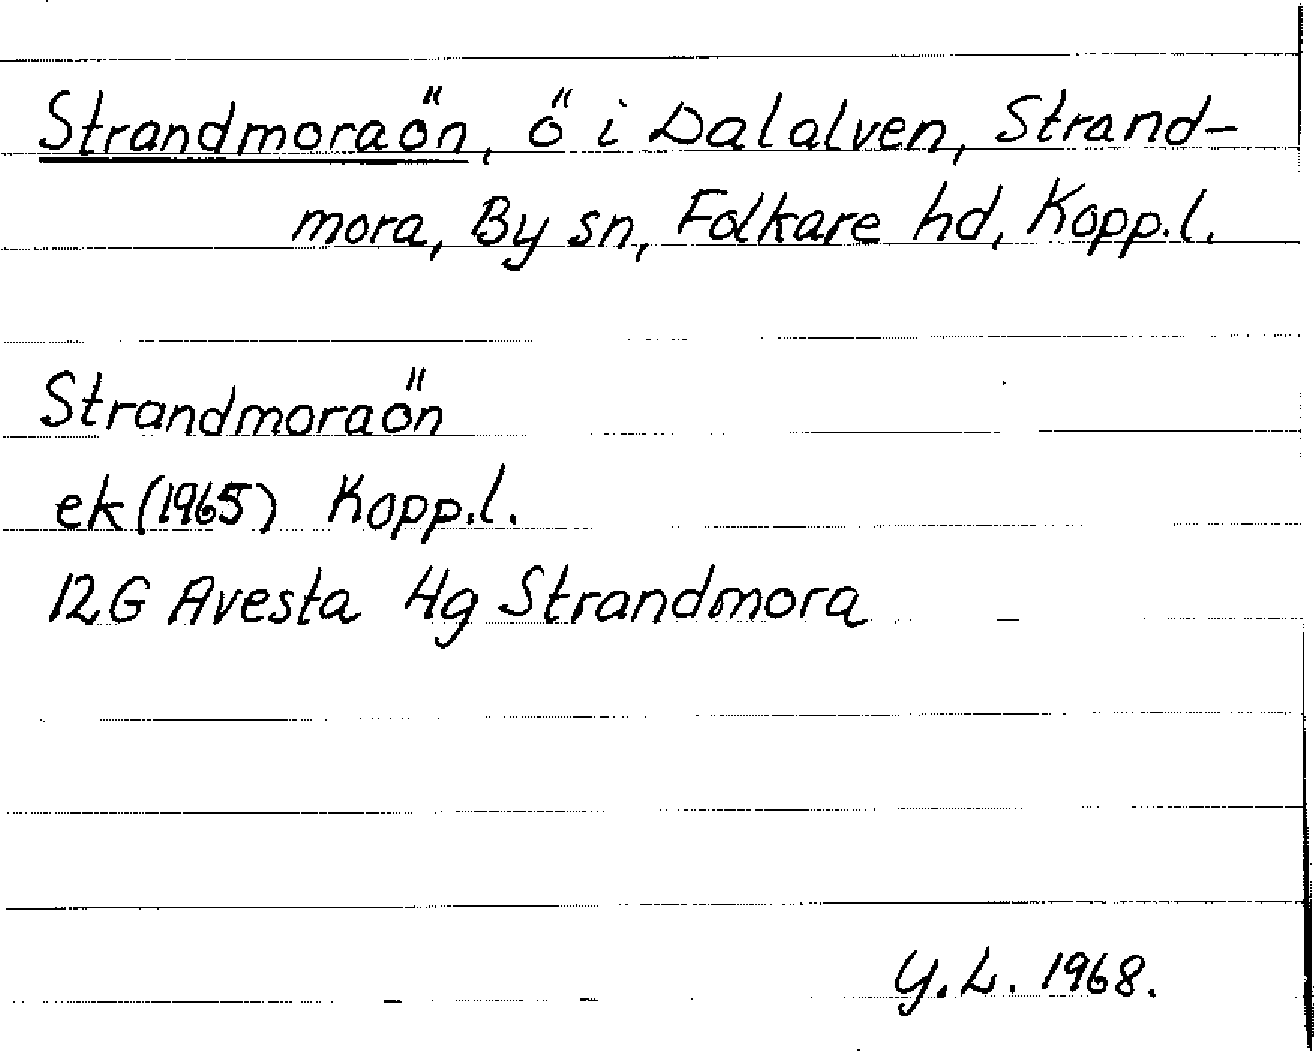 Strandmoraön, ö i Dalalven, Strand-
mora, By sn, Folkare hd, Kopp.l.
Strandmoraön
ek (1965) Kopp.l.
12G Avesta 4g Strandmora
Y.L. 1968.